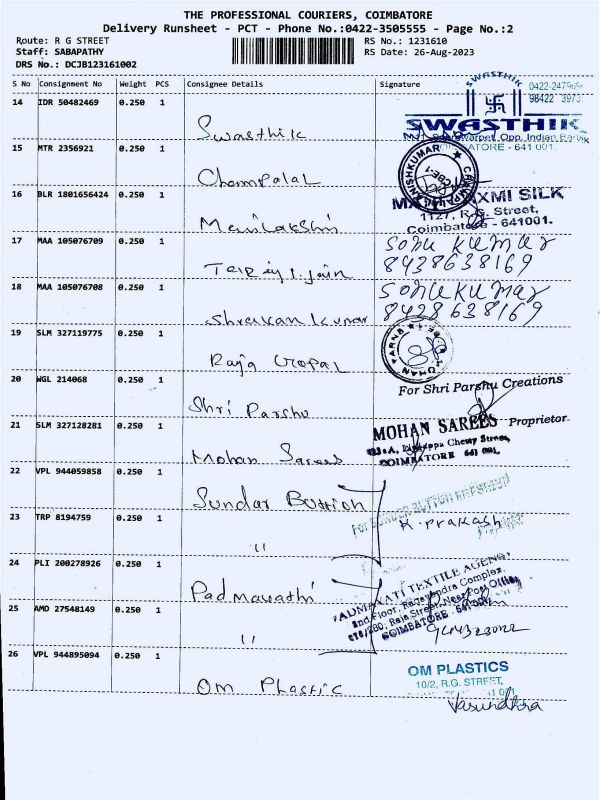 THE PROFESSIONAL COURIERS, COIMBATORE
Delivery Runsheet - PCT - Phone No.:0422-3505555 - Page No.:2
Route: R G STREET
RS No.: 1231610
Staff: SABAPATHY
RS Date: 26-Aug-2023
DRS No.: DCJB123161002
S No Consignment No Weight PCS Consignee Details Signature
SWASTHIK
14 IDR 50482469 0.250 1 Swasthik
SWASTHIK
Opp. Indian Bank
COIMBATORE - 641 001.
15 MTR 2356921 0.250 1 Champalal
16 BLR 1801656424 0.250 1
LAXMI SILK
1127, R.G. Street,
Coimbatore - 641001.
17 MAA 105076709 0.250 1
Sonu Kumar
8428638169
18 MAA 105076708 0.250 1
Sonu Kumar
8428638169
19 SLM 327119775 0.250 1 Raja Gopal
20 WGL 214068 0.250 1 Shri Parshu
For Shri Parshu Creations
Proprietor
21 SLM 327128281 0.250 1 Mohan Sarees
MOHAN SAREES
COIMBATORE 641 001.
22 VPL 944059858 0.250 1 Sundar Button
23 TRP 8194759 0.250 1 "
K. Prakash
24 PLI 200278926 0.250 1 Padmavathi
PADMAVATI TEXTILE AGENCY
2nd Floor, Raghavendra Complex,
Raja Street, Near Post Office
COIMBATORE - 641 001.
25 AMD 27548149 0.250 1 "
26 VPL 944895094 0.250 1 Om Plastic
OM PLASTICS
10/2, R.G. STREET,
Vasundhra